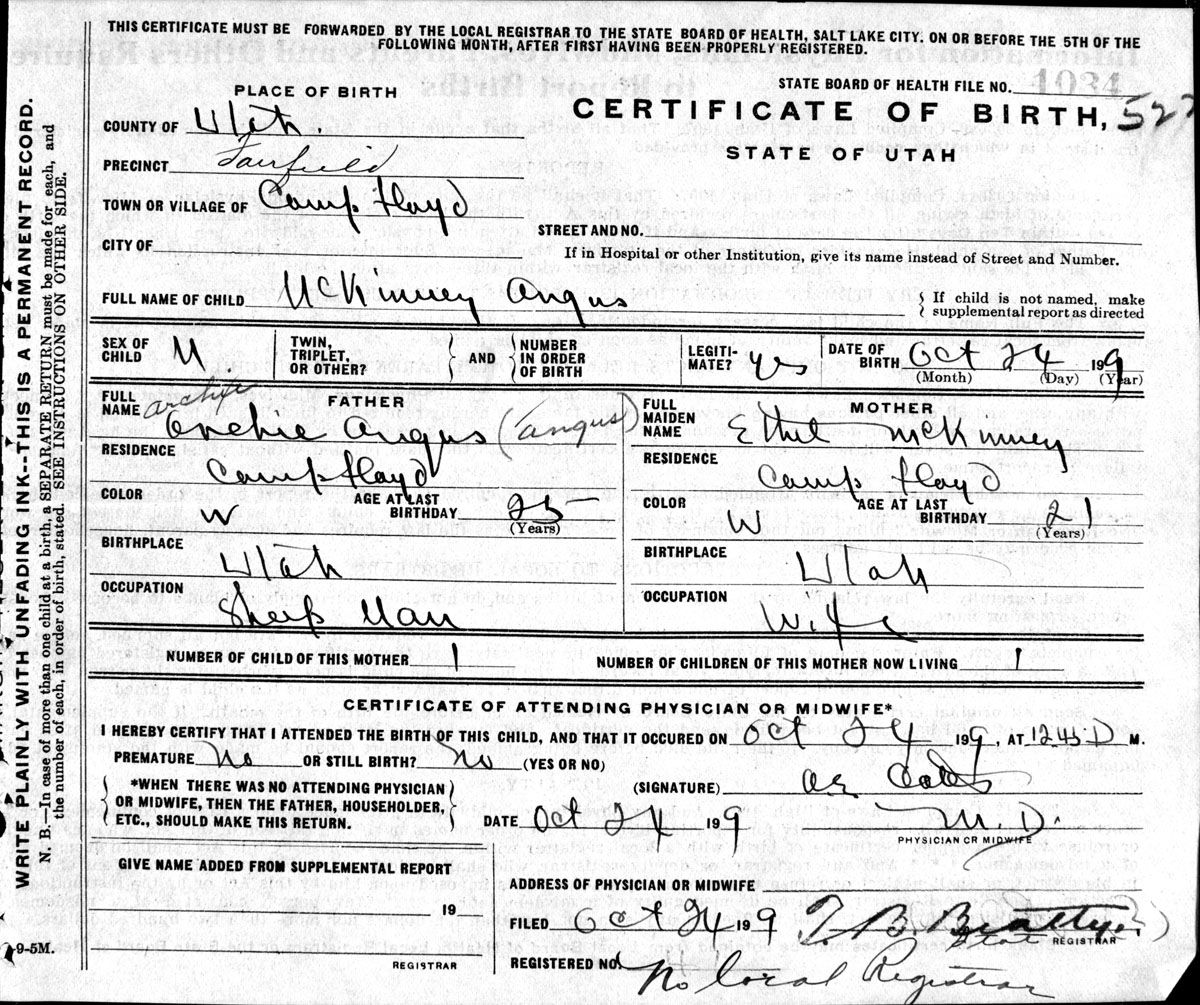 THIS CERTIFICATE MUST BE FORWARDED BY THE LOCAL REGISTRAR TO THE STATE BOARD OF HEALTH, SALT LAKE CITY, ON OR BEFORE THE 5TH OF THE
FOLLOWING MONTH, AFTER FIRST HAVING BEEN PROPERLY REGISTERED.
STATE BOARD OF HEALTH FILE NO. 1034
PLACE OF BIRTH
CERTIFICATE OF BIRTH, 522
STATE OF UTAH
COUNTY OF Utah.
PRECINCT Fairfield
TOWN OR VILLAGE OF Camp Floyd
STREET AND NO.
CITY OF
If in Hospital or other Institution, give its name instead of Street and Number.
FULL NAME OF CHILD McKinney Angus
If child is not named, make
supplemental report as directed
SEX OF CHILD M TWIN, TRIPLET, OR OTHER? AND NUMBER IN ORDER OF BIRTH LEGITI-MATE? yes DATE OF BIRTH Oct 24 1919
(Month) (Day) (Year)
FATHER
FULL NAME Archie
Archie Angus (Angus)
RESIDENCE
Camp Floyd
COLOR W AGE AT LAST BIRTHDAY 25
(Years)
BIRTHPLACE
Utah
OCCUPATION
Sheep Man
MOTHER
FULL MAIDEN NAME Ethel McKinney
RESIDENCE
Camp Floyd
COLOR W AGE AT LAST BIRTHDAY 21
(Years)
BIRTHPLACE
Utah
OCCUPATION
Wife
NUMBER OF CHILD OF THIS MOTHER 1 NUMBER OF CHILDREN OF THIS MOTHER NOW LIVING 1
CERTIFICATE OF ATTENDING PHYSICIAN OR MIDWIFE*
I HEREBY CERTIFY THAT I ATTENDED THE BIRTH OF THIS CHILD, AND THAT IT OCCURED ON Oct 24 1919, AT 1245 M.
PREMATURE No OR STILL BIRTH? No (YES OR NO)
*WHEN THERE WAS NO ATTENDING PHYSICIAN
OR MIDWIFE, THEN THE FATHER, HOUSEHOLDER,
ETC., SHOULD MAKE THIS RETURN.
(SIGNATURE)
DATE Oct 24 1919 M.D.
PHYSICIAN OR MIDWIFE
GIVE NAME ADDED FROM SUPPLEMENTAL REPORT
19
REGISTRAR
ADDRESS OF PHYSICIAN OR MIDWIFE
FILED Oct 24 1919 T. B. Beatty.
REGISTRAR
REGISTERED NO.
No local Registrar
WRITE PLAINLY WITH UNFADING INK--THIS IS A PERMANENT RECORD.
N. B.—In case of more than one child at a birth, a SEPARATE RETURN must be made for each, and
the number of each, in order of birth, stated. SEE INSTRUCTIONS ON OTHER SIDE.
9-5M.